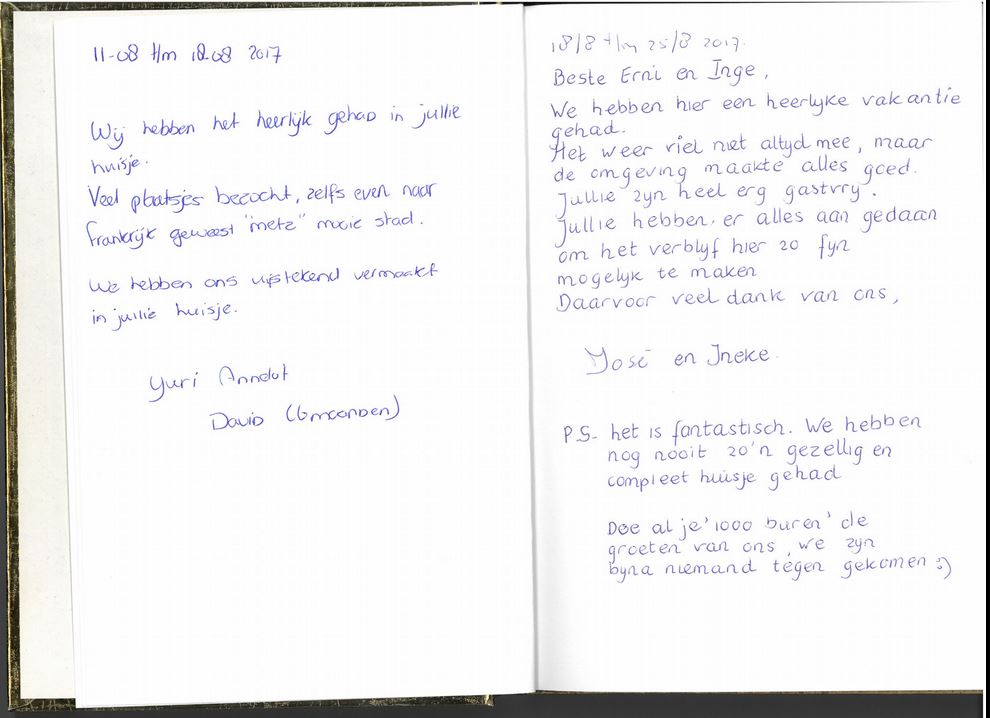 11-08 t/m 18-08 2017
Wij hebben het heerlijk gehad in jullie
huisje.
Veel plaatsjes bezocht, zelfs even naar
frankrijk geweest "metz" mooie stad.
We hebben ons uitstekend vermaakt
in jullie huisje.
Yuri Annelot
David (6 maanden)
18/8 t/m 25/8 2017.
Beste Erni en Inge,
We hebben hier een heerlyke vakantie
gehad.
Het weer viel niet altyd mee, maar
de omgeving maakte alles goed.
Jullie zyn heel erg gastvry.
Jullie hebben er alles aan gedaan
om het verblyf hier zo fyn
mogelyk te maken
Daarvoor veel dank van ons,
José en Ineke
P.S. het is fantastisch. We hebben
nog nooit zo'n gezellig en
compleet huisje gehad
Doe al je '1000 buren' de
groeten van ons, we zyn
byna niemand tegen gekomen :)